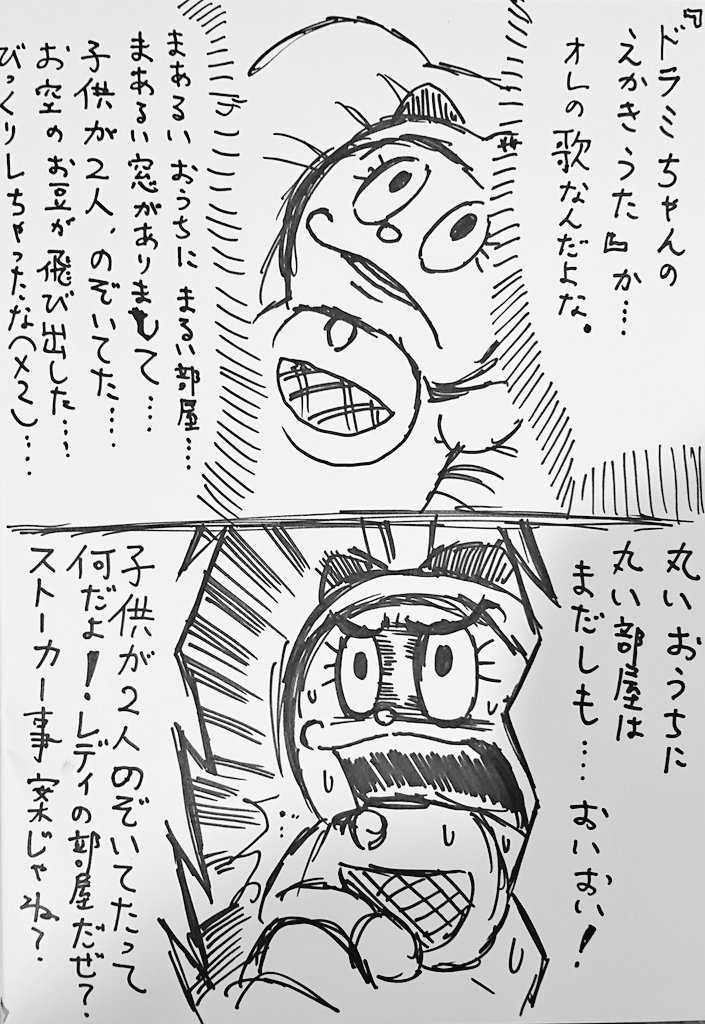 『ドラミちゃんの
えかきうた』か…
オレの歌なんだよな。
まあるいおうちにまるい部屋…
まあるい窓がありまして…
子供が2人、のぞいてた…
お空のお豆が飛び出した…
びっくりしちゃったな(×2)…
丸いおうちに
丸い部屋は
まだしも…おいおい!
子供が2人のぞいてたって
何だよ!レディの部屋だぜ?
ストーカー事案じゃね?